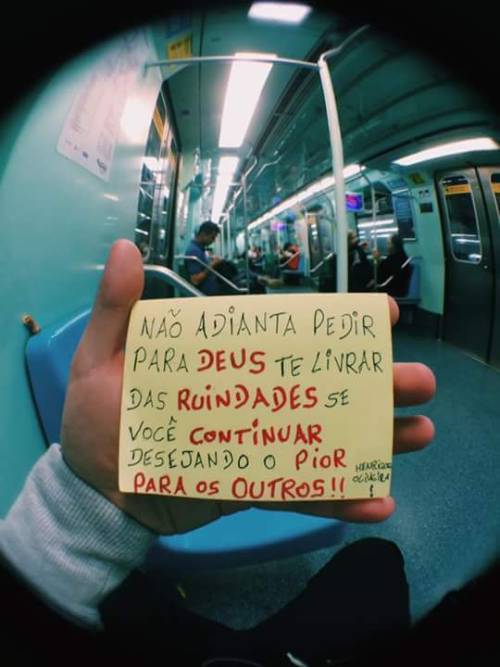 NÃO ADiANTA PEDiR
PARA DEUS TE LiVRAR
DAS RUiNDADES SE
VOCÊ CONTiNUAR
DESEJANDO O PiOR
PARA OS OUTROS!!
HENRiQUE
OLiVEiRA